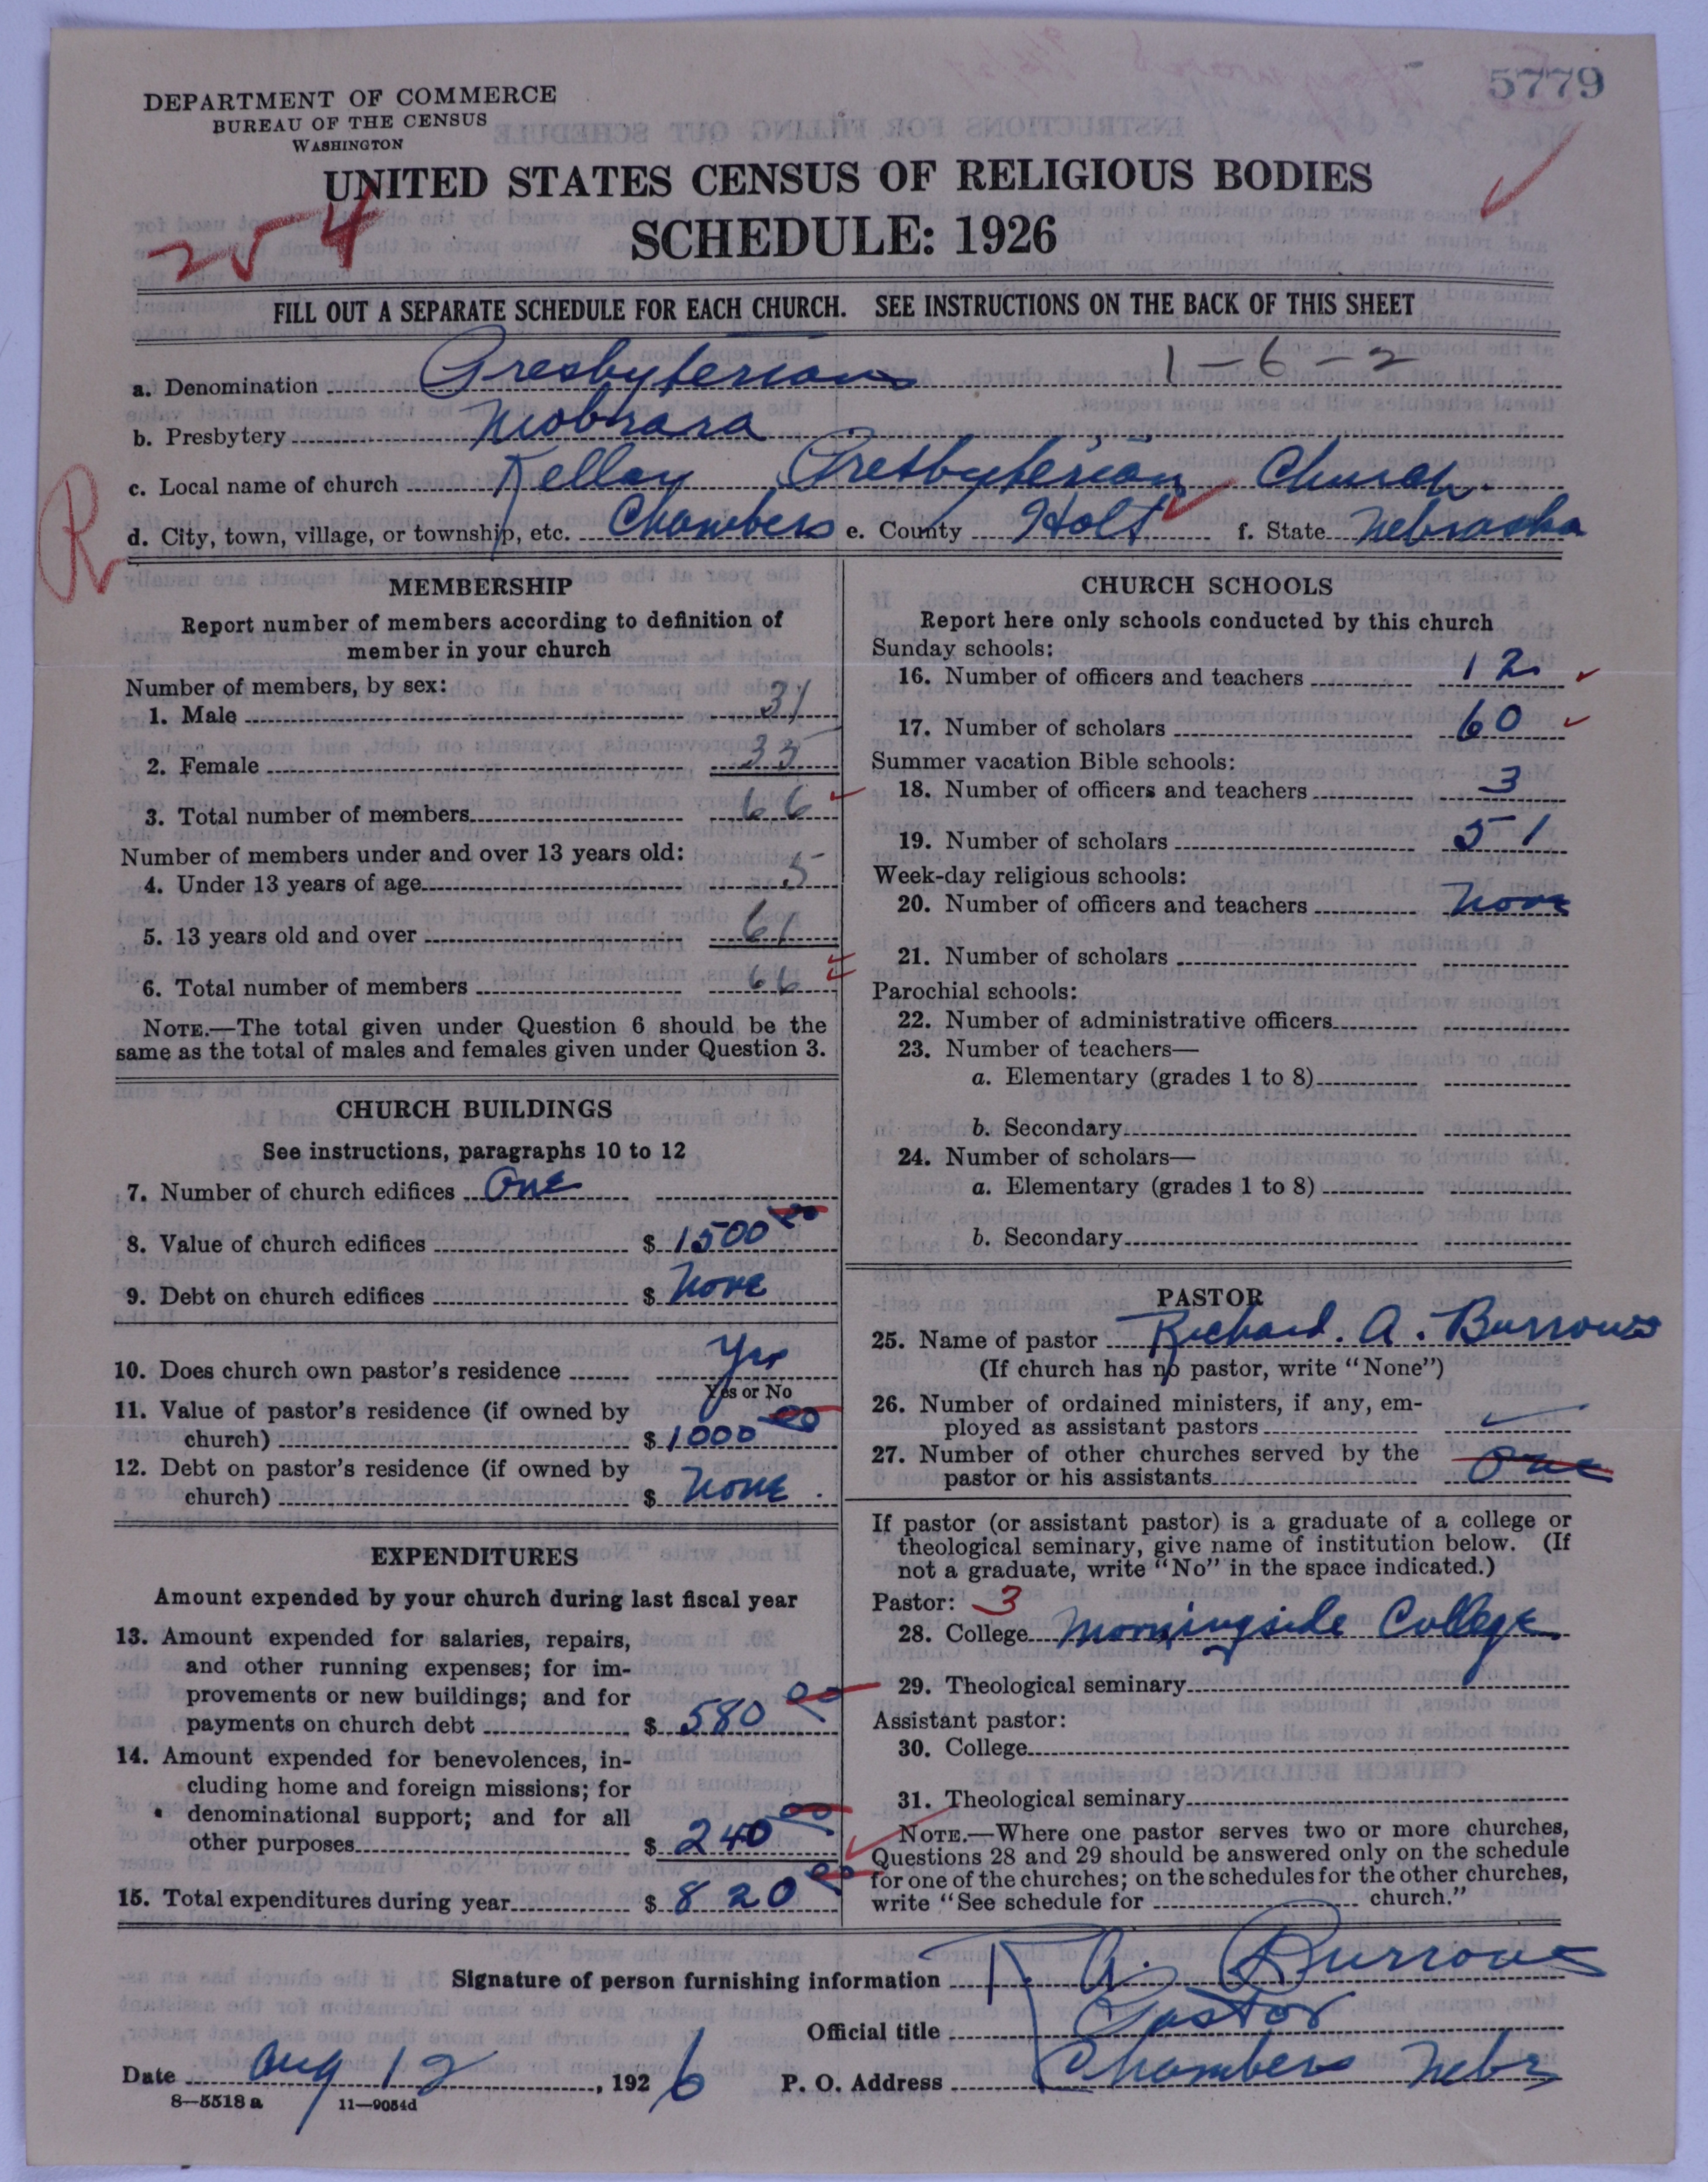 5779
DEPARTMENT OF COMMERCE
BUREAU OF THE CENSUS
WASHINGTON
UNITED STATES CENSUS OF RELIGIOUS BODIES
SCHEDULE: 1926
254
FILL OUT A SEPARATE SCHEDULE FOR EACH CHURCH. SEE INSTRUCTIONS ON THE BACK OF THIS SHEET
a. Denomination Presbyterian 1-6-2
b. Presbytery Niobrara
c. Local name of church Kellar Presbyterian Church.
R
d. City, town, village, or township, etc. Chambers e. County Holt f. State Nebraska
MEMBERSHIP
Report number of members according to definition of
member in your church
Number of members, by sex:
1. Male 31
2. Female 35
3. Total number of members 66
Number of members under and over 13 years old:
4. Under 13 years of age 5
5. 13 years old and over 61
6. Total number of members 66
NOTE.—The total given under Question 6 should be the
same as the total of males and females given under Question 3.
CHURCH BUILDINGS
See instructions, paragraphs 10 to 12
7. Number of church edifices One
8. Value of church edifices $ 1500 00
9. Debt on church edifices $ None
10. Does church own pastor's residence Yes
Yes or No
11. Value of pastor's residence (if owned by
church) $ 1000 00
12. Debt on pastor's residence (if owned by
church) $ None.
EXPENDITURES
Amount expended by your church during last fiscal year
13. Amount expended for salaries, repairs,
and other running expenses; for im-
provements or new buildings; and for
payments on church debt $ 580 00
14. Amount expended for benevolences, in-
cluding home and foreign missions; for
denominational support; and for all
other purposes $ 240 00
15. Total expenditures during year $ 820 00
CHURCH SCHOOLS
Report here only schools conducted by this church
Sunday schools:
16. Number of officers and teachers 12
17. Number of scholars 60
Summer vacation Bible schools:
18. Number of officers and teachers 3
19. Number of scholars 51
Week-day religious schools:
20. Number of officers and teachers None
21. Number of scholars
Parochial schools:
22. Number of administrative officers
23. Number of teachers—
a. Elementary (grades 1 to 8)
b. Secondary
24. Number of scholars—
a. Elementary (grades 1 to 8)
b. Secondary
PASTOR
25. Name of pastor Richard. A. Burrows
(If church has no pastor, write "None")
26. Number of ordained ministers, if any, em-
ployed as assistant pastors
27. Number of other churches served by the
pastor or his assistants One
If pastor (or assistant pastor) is a graduate of a college or
theological seminary, give name of institution below. (If
not a graduate, write "No" in the space indicated.)
Pastor: 3
28. College Morningside College
29. Theological seminary
Assistant pastor:
30. College
31. Theological seminary
NOTE.—Where one pastor serves two or more churches,
Questions 28 and 29 should be answered only on the schedule
for one of the churches; on the schedules for the other churches,
write "See schedule for church."
Signature of person furnishing information R. A. Burrows
Official title Pastor
Date Aug 12, 1926 P. O. Address Chambers Nebr
8—5518 a 11—9054d